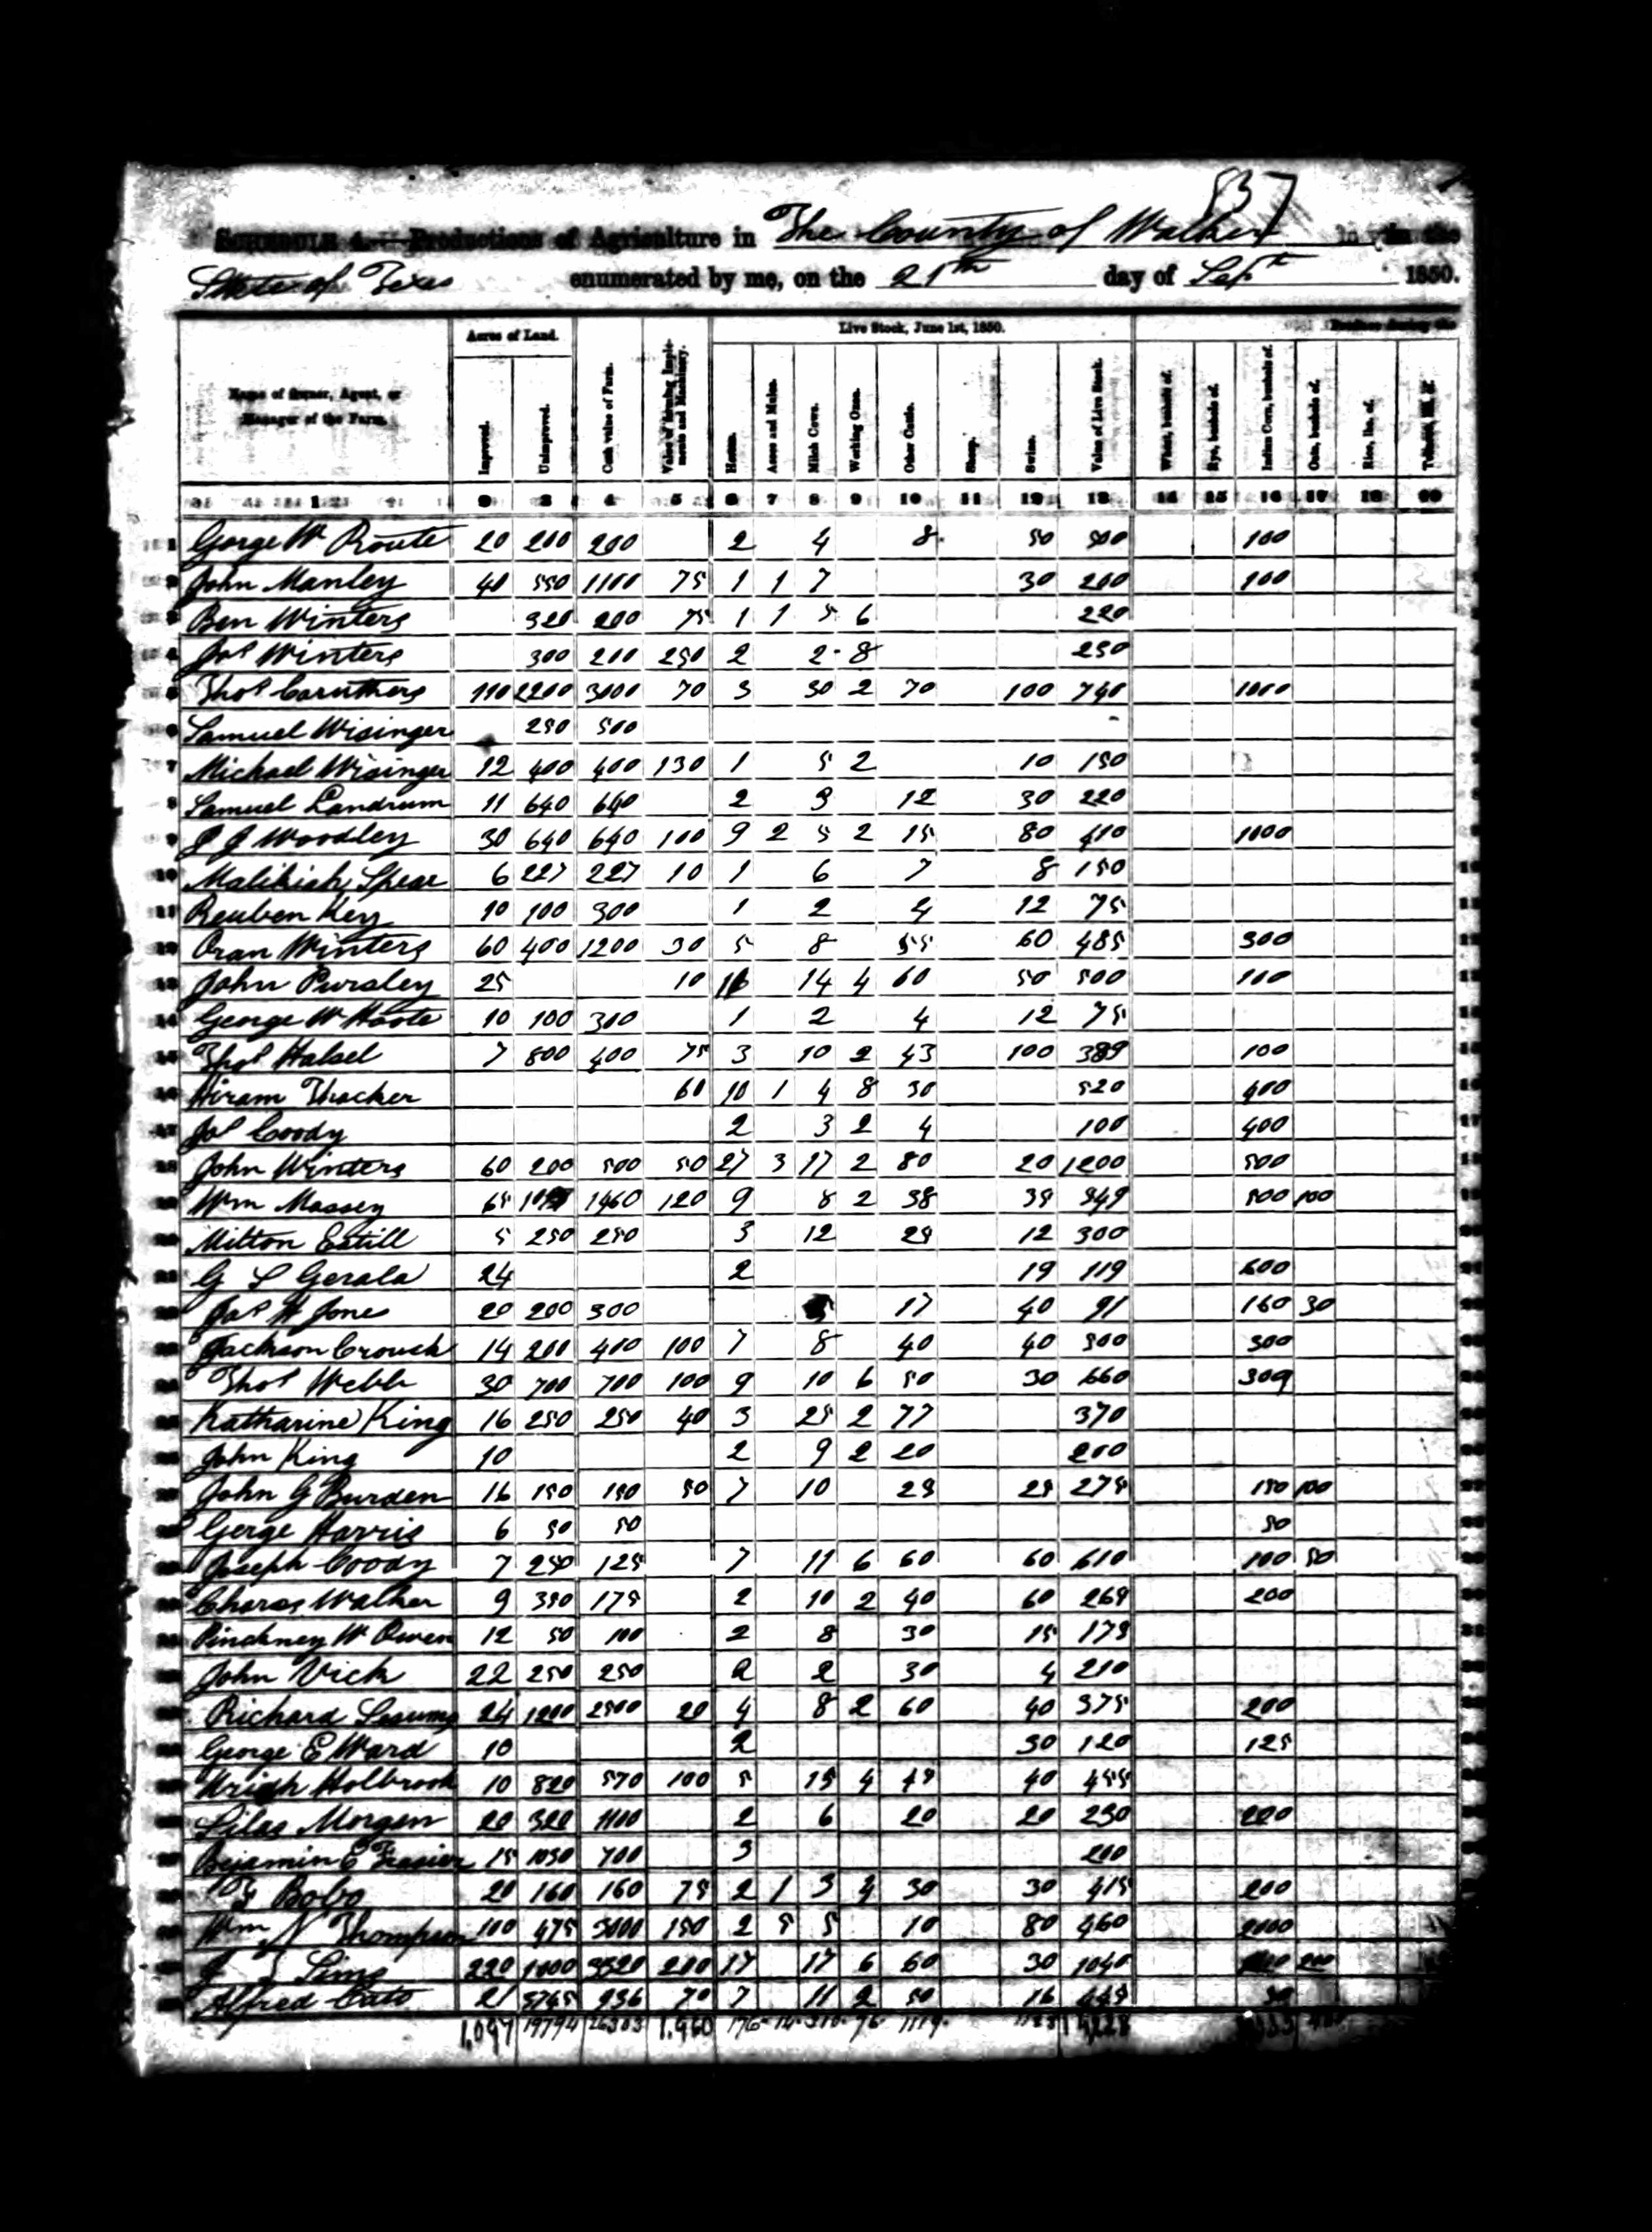 837
SCHEDULE 4.—Productions of Agriculture in The County of Walker in the
State of Texas enumerated by me, on the 21th day of Sept 1850.
Acres of Land. Live Stock, June 1st, 1850. Produce during the
Name of Owner, Agent, or Manager of the Farm. Improved. Unimproved. Cash value of Farm. Value of farming Implements and Machinery. Horses. Asses and Mules. Milch Cows. Working Oxen. Other Cattle. Sheep. Swine. Value of Live Stock. Wheat, bushels of. Rye, bushels of. Indian Corn, bushels of. Oats, bushels of. Rice, lbs. of. Tobacco, lbs. of.
1 2 3 4 5 6 7 8 9 10 11 12 13 14 15 16 17 18 20
1 Gorge W Route 20 200 200 2 4 8 50 500 100
2 John Manley 40 550 1100 75 1 1 7 30 200 100
3 Ben Winters 320 200 75 1 1 5 6 220
4 Jos Winters 300 200 250 2 2 8 250
5 Thos Caruthers 110 2200 3000 70 3 30 2 70 100 740 1000
6 Samuel Wisinger 250 500
7 Michael Wisinger 12 400 400 130 1 5 2 10 150
8 Samuel Landrum 11 640 640 2 3 12 30 220
9 J J Woodley 30 640 640 100 9 2 5 2 15 80 410 1000
10 Malikiah Spear 6 227 227 10 1 6 7 8 150
11 Reuben Key 10 100 300 1 2 4 12 75
12 Oran Winters 60 400 1200 30 5 8 55 60 485 300
13 John Pursley 25 10 16 14 4 60 50 500 100
14 George W Hoote 10 100 300 1 2 4 12 75
15 Thos Halsel 7 800 400 75 3 10 2 43 100 389 100
16 Hiram Thacker 60 10 1 4 8 30 520 400
17 Jos Coody 2 3 2 4 100 400
18 John Winters 60 200 500 50 27 3 17 2 80 20 1200 500
19 Wm Massey 65 1460 120 9 8 2 38 35 349 500 100
20 Milton Estill 5 250 250 3 12 25 12 300
21 G S Gerala 24 2 19 119 600
22 Jas H Jones 20 200 300 17 40 91 160 30
23 Jackson Crouch 14 200 400 100 7 8 40 40 300 300
24 Thos Webb 30 700 700 100 9 10 6 50 30 660 309
25 Katharine King 16 250 250 40 3 25 2 77 370
26 John King 10 2 9 2 20 200
27 John G Burden 16 150 150 50 7 10 25 25 275 150 100
28 Gerge Harris 6 50 50 50
29 Joseph Coody 7 250 125 7 11 6 60 60 610 100 50
30 Charos Walker 9 350 175 2 10 2 40 60 265 200
31 Pinckney W Owen 12 50 100 2 8 30 15 175
32 John Vick 22 250 250 2 2 30 4 210
33 Richard Sesums 24 1200 2500 20 4 8 2 60 40 375 200
34 George E Ward 10 2 30 120 125
35 Uriah Holbrook 10 820 570 100 5 15 4 45 40 455
36 Silas Morgen 20 320 1100 2 6 20 20 230 200
37 Bejamin E Frasier 15 1050 700 3 200
38 Bobo 20 160 160 75 2 1 3 4 30 30 415 200
39 Wm N Thompson 100 475 3000 150 2 5 5 10 80 460 2000
40 J J Sims 220 1000 3520 200 17 17 6 60 30 1040 200
41 Alfred Cato 21 5765 936 70 7 11 2 50 16 449
1,097 19794 26303 1,960 176 14 310 76 1119